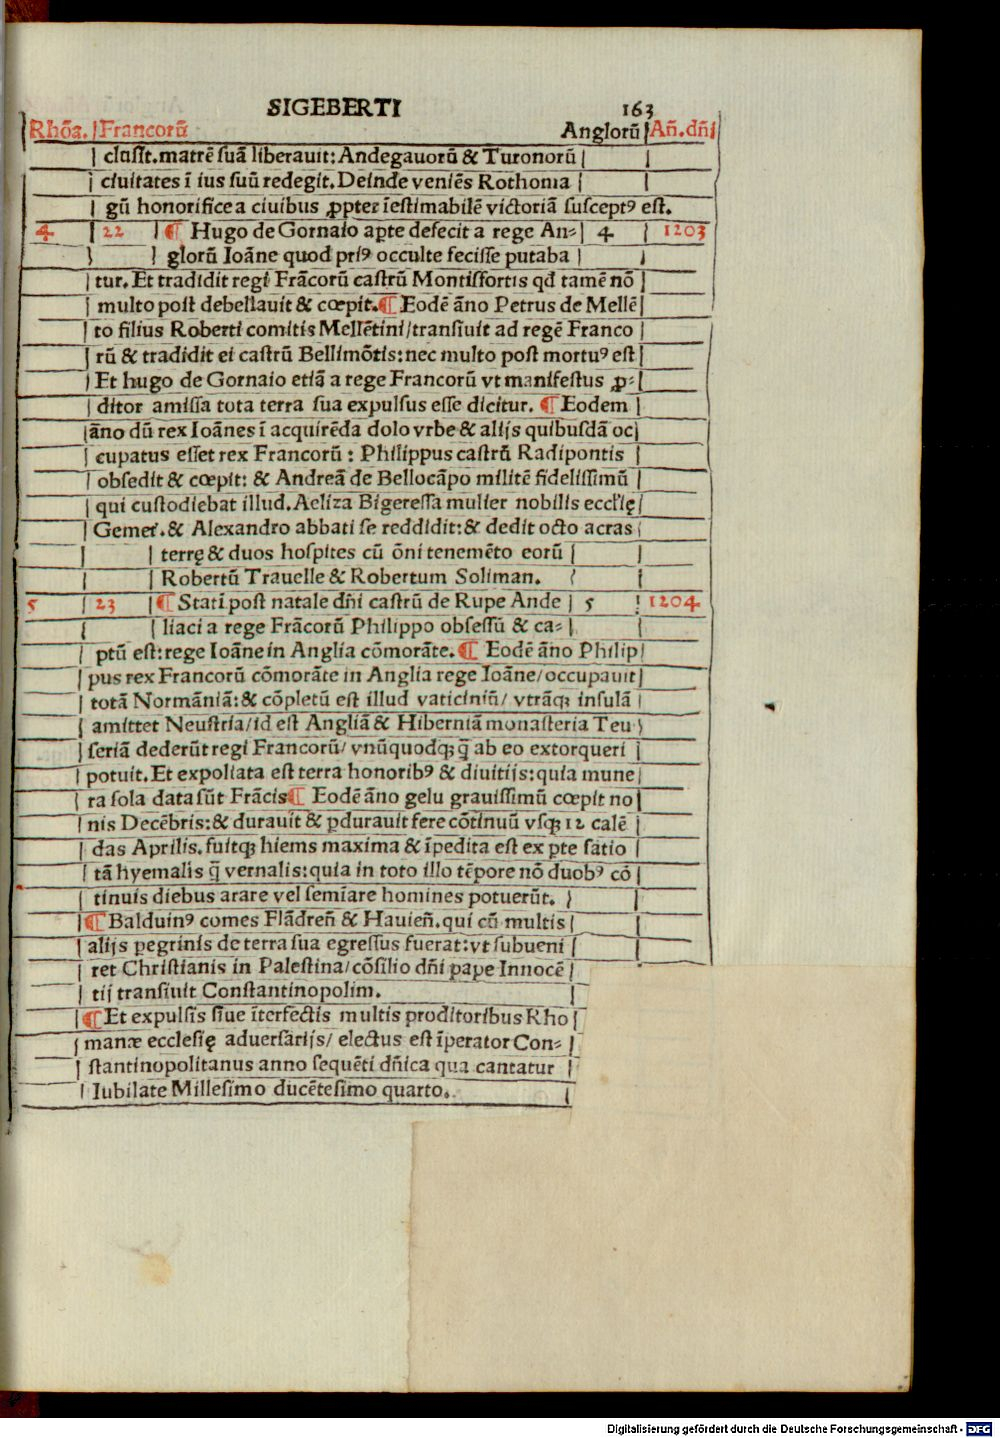 SIGEBERTI 163
Rhõa. Francorũ Anglorũ Añ.dñi
clusit.matrẽ suã liberauit: Andegauorũ & Turonorũ
ciuitates ĩ ius suũ redegit. Deinde veniẽs Rothoma
gũ honorifice a ciuibus ꝓpter ĩestimabilẽ victoriã susceptꝰ est.
4 22 ¶ Hugo de Gornaio aꝑte defecit a rege An⸗ 4 1203
glorũ Ioãne quod priꝰ occulte fecisse putaba
tur. Et tradidit regi Frãcorũ castrũ Montisfortis qđ tamẽ nõ
multo post debellauit & cœpit.¶ Eodẽ ãno Petrus de Mellẽ
to filius Roberti comitis Mellẽtini/transiuit ad regẽ Franco
rũ & tradidit ei castrũ Bellimõtis: nec multo post mortuꝰ est
Et hugo de Gornaio etiã a rege Francorũ vt manifestus ꝓ⸗
ditor amissa tota terra sua expulsus esse dicitur. ¶ Eodem
ãno dũ rex Ioãnes ĩ acquirẽda dolo vrbe & alijs quibusdã oc
cupatus esset rex Francorũ : Philippus castrũ Radipontis
obsedit & cœpit: & Andreã de Bellocãpo militẽ fidelissimũ
qui custodiebat illud. Aeliza Bigeressa mulier nobilis eccl'ię
Gemet. & Alexandro abbati se reddidit: & dedit octo acras
terrę & duos hospites cũ õni tenemẽto eorũ
Robertũ Trauelle & Robertum Soliman.
5 23 ¶ Statĩ post natale dñi castrũ de Rupe Ande 5 1204
liaci a rege Frãcorũ Philippo obsessũ & ca⸗
ptũ est: rege Ioãne in Anglia cõmorãte.¶ Eodẽ ãno Philip
pus rex Francorũ cõmorãte in Anglia rege Ioãne/occupauit
totã Normãniã: & cõpletũ est illud vaticiniũ/ vtrãqꝫ insulã
amittet Neustria/id est Angliã & Hiberniã monasteria Teu
seriã dederũt regi Francorũ/ vnũquodqꝫ q̃ ab eo extorqueri
potuit. Et expoliata est terra honoribꝰ & diuitijs: quia mune
ra sola data sũt Frãcis¶ Eodẽ ãno gelu grauissimũ cœpit no
nis Decẽbris: & durauit & ꝑdurauit fere cõtinuũ vsqꝫ 12 calẽ
das Aprilis. fuitqꝫ hiems maxima & ĩpedita est ex ꝑte satio
tã hyemalis q̃ vernalis: quia in toto illo tẽpore nõ duobꝰ cõ
tinuis diebus arare vel semĩare homines potuerũt.
¶ Balduinꝰ comes Flãdreñ & Hauieñ. qui cũ multis
alijs ꝑegrinis de terra sua egressus fuerat: vt subueni
ret Christianis in Palestina/cõsilio dñi pape Innocẽ
tij transiuit Constantinopolim.
¶ Et expulsis siue ĩterfectis multis proditoribus Rho
manæ ecclesię aduersarijs/ electus est ĩperator Con⸗
stantinopolitanus anno sequẽti dñica qua cantatur
Iubilate Millesimo ducẽtesimo quarto.
Digitalisierung gefördert durch die Deutsche Forschungsgemeinschaft - DFG